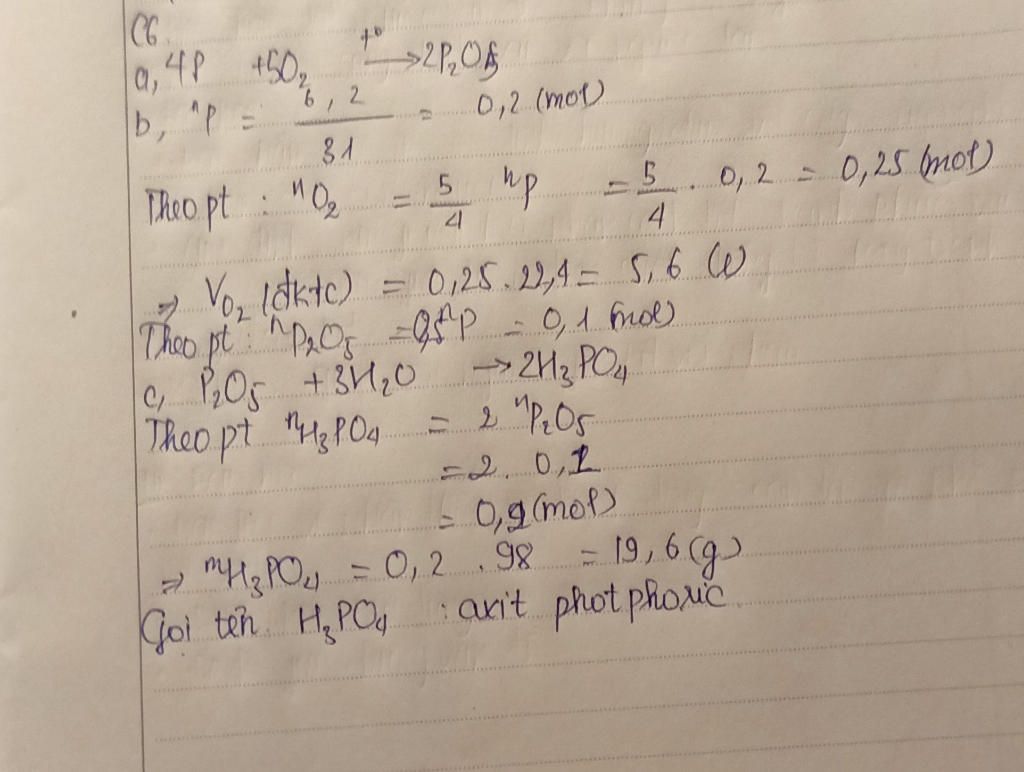 C6.
a, 4P + 5O₂ —t°→ 2P₂O₅
b, nP = 6,2 / 31 = 0,2 (mol)
Theo pt : nO₂ = 5/4 nP = 5/4 . 0,2 = 0,25 (mol)
⇒ VO₂ (đktc) = 0,25. 22,4 = 5,6 (l)
Theo pt : nP₂O₅ = 0,5nP = 0,1 (mol)
c, P₂O₅ + 3H₂O → 2H₃PO₄
Theo pt nH₃PO₄ = 2 nP₂O₅
= 2. 0,1
= 0,2 (mol)
⇒ mH₃PO₄ = 0,2 . 98 = 19,6 (g)
Gọi tên H₃PO₄ : axit photphoric